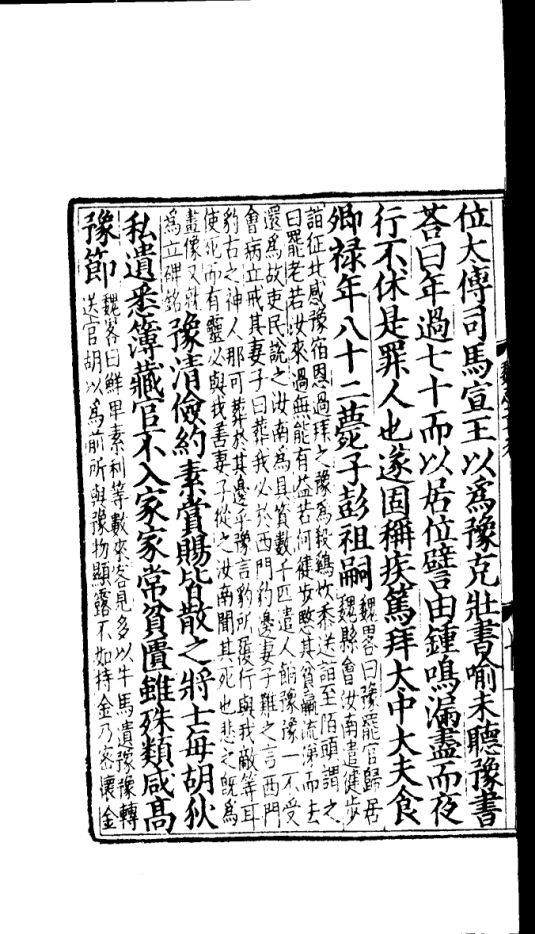 位太傅司馬宣王以爲豫克壯書喻未聽豫書
荅曰年過七十而以居位譬由鍾鳴漏盡而夜
行不休是罪人也遂固稱疾篤拜大中大夫食
卿禄年八十二薨子彭祖嗣
魏畧曰豫罷官歸居
魏縣會汝南遣健步
詣征北感豫宿恩過拜之豫爲殺鷄炊黍送詣至陌頭謂之
曰罷老苦汝來過無能有益若何健步愍其貧羸流涕而去
還爲故吏民說之汝南爲具資數千匹遣人餉豫豫一不受
會病立戒其妻子曰葬我必於西門豹邊妻子難之言西門
豹古之神人那可葬於其邊乎豫言豹所履行與我敵等耳
使死而有靈必與我善妻子從之汝南聞其死也悲之旣爲
畫像又就
爲立碑銘
豫清儉約素賞賜皆散之將士每胡狄
私遺悉簿藏官不入家家常貧匱雖殊類咸髙
豫節
魏畧曰鮮卑素利等數來客見多以牛馬遺豫豫轉
送官胡以爲前所與豫物顯露不如持金乃密懷金